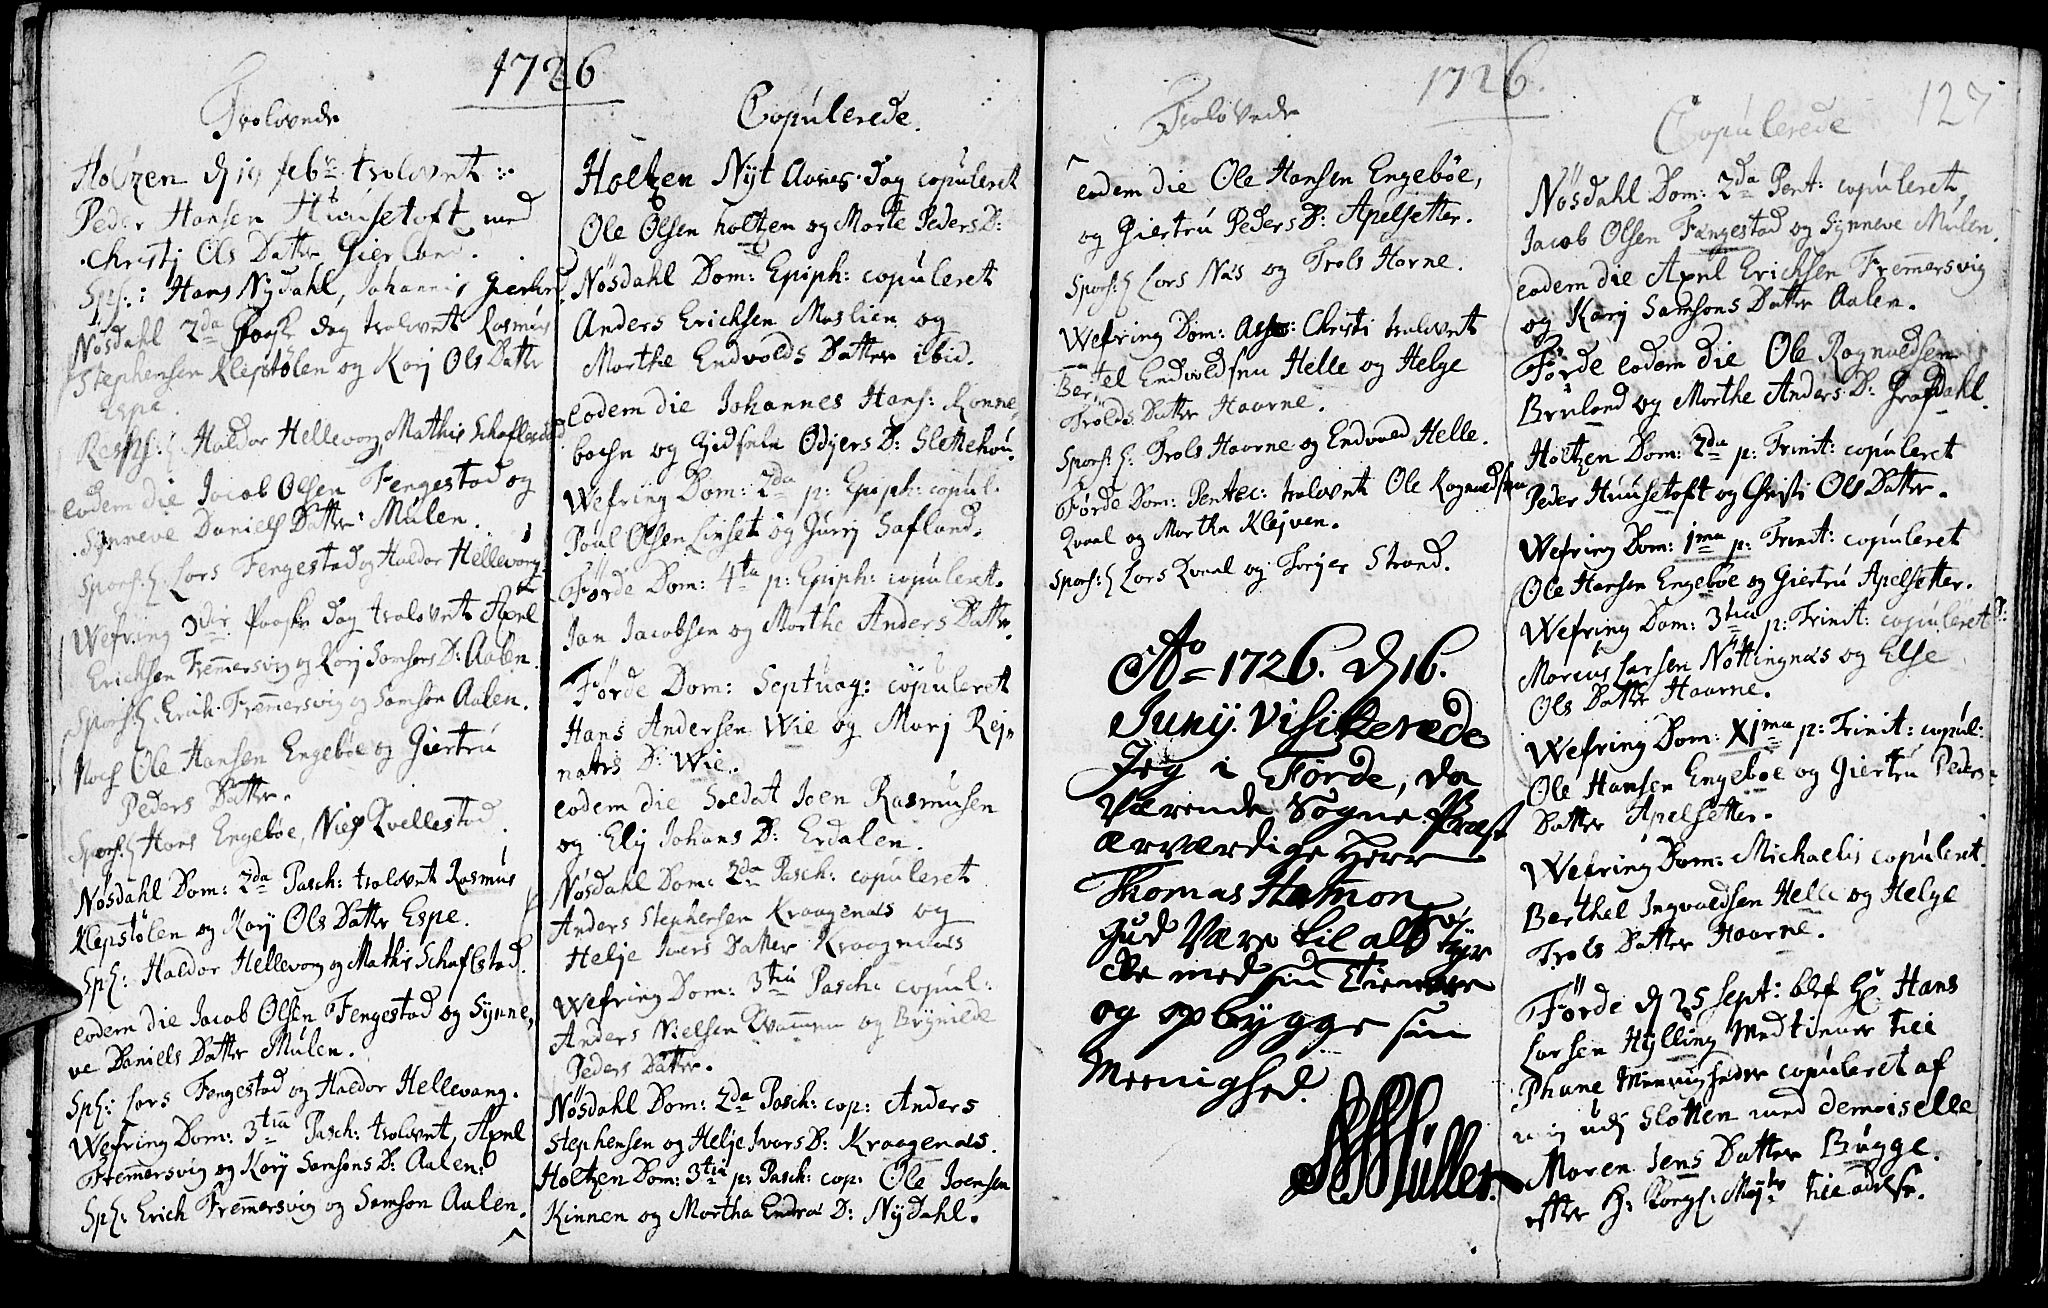 1726
Trolovede
Holtzen d 10 febr: trolovet
Peder Hansen Huusetoft med
Christj Ols Datter Gierland.
Sps: Hans Nydahl, Johannis Gierland
Nøsdahl 2da Paaske dag trolovet Rasmus
Stephensen Klepstølen og Karj Ols Datter
Espe
Haldor Hellevong, Mathis Schaflestad
eodem die Jacob Olsen Fengestad og
Synneve Daniels Datter Mulen.
Spors: Lars Fengestad og Haldor Hellevong
Wefring 3die Paaske dag trolovet Axel
Ericksen Fremmersvig og Karj Samsons D: Aalen.
Spors: Erich Fremmersvig og Samson Aalen.
Noch Ole Hansen Engebøe og Giertru
Peders Datter.
Spors: Hans Engebøe, Niels Kvellestad.
Nøsdahl Dom: 2da Pasch: trolovet Rasmus
Klepstølen og Karj Ols Datter Espe.
Sps: Haldor Hellevong og Mathis Schaflestad.
eodem die Jacob Olsen Fengestad og Synne,
ve Daniels Datter Mulen.
Sps: Lars Fengestad og Haldor Hellevang.
Wefring Dom: 3tia Pasch: trolovet, Axel
Fremmersvig og Karj Samsons D: Aalen:
Sps: Erich Fremmersvig og Samson Aalen.
Copulerede.
Holtzen Nyt Aars dag copuleret
Ole Olsen holtzen og Marte Peders D:
Nøsdahl Dom: Epiph: copuleret
Anders Ericksen Moslien og
Marthe Endvolds Datter ibid.
eodem die Johannes Hans: Ronne,
bachn og Odgers D: Slettehou.
Wefring Dom: 2da p: Epiph: copul.
Poul Olsen Linset og Gurj Safland.
Førde Dom: 4ta p: Epiph: copuleret.
Jan Jacobsen og Marthe Anders Datter.
Førde Dom: Septuag: copuleret
Hans Andersen Wie og Marj Rej,
naters D: Wie.
eodem die Soldat Joen Rasmusen
og Elj Johans D: Erdalen.
Nøsdahl Dom: 2da Pasch: copuleret
Anders Stephensen Kraagenæs og
Helje Ivers Datter Kraagenæs
Wefring Dom: 3tia Pasch: copul:
Anders Nielsen Kvammen og Brynilde
Peders Datter.
Nøsdahl Dom: 2da Pasch: cop: Anders
Stephensen og Helje Ivars D: Kraagenæs.
Holtzen Dom: 3tia p: Pasch: cop: Ole Joensen
Kinnen og Martha Endra D: Nydahl.
1726.
127
Trolovede
eodem die Ole Hansen Engebøe,
og Giertru Peders D: Apelsetter.
Spors: Lars Næs og Trols Horne.
Wefring Dom: Christi trolovet
Bertel Endvoldsen Helle og Helge
Trolds Datter Haarne.
Spors: Trols Haarne og Endvold Helle.
Førde Dom: Pentec: trolovet Ole Rognvedsen
Kvaal og Martha Klejven.
Spors: Lars Kvaal og Torjer Strand.
Ao 1726. d 16.
Junij. Visiterede
Jeg i Førde, da
Værende Sogne Præst
ærværdige Herr
Thomas Hamon
Gud Være til alt Styr
cke med sin Tienere
og opbygge sin
Meenighed.
Müller.
Copulerede
Nøsdahl Dom: 2da Pent: copuleret,
Jacob Olsen Fængestad og Synneve Mulen.
eodem die Axel Ericksen Fremmersvig
og Karj Samsons Datter Aalen.
Førde eodem die Ole Rognvedsen
Bruland og Marthe Anders D: Grafdahl.
Holtzen Dom: 2da p: Trinit: copuleret
Peder Huusetoft og Christi Ols Datter.
Wefring Dom: 1ma p: Trinit: copuleret
Ole Hansen Engebøe og Giertru Apelsetter.
Wefring Dom: 3tia p: Trinit: copuleret
Marcus Larsen Nøttingnæs og Else
Ols Datter Haarne.
Wefring Dom: XJma p: Trinit: copul:
Ole Hansen Engebøe og Giertru Peders
Datter Apelsetter.
Wefring Dom: Michaelis copuleret.
Berthel Ingvaldsen Helle og Helge
Trols Datter Haarne.
Førde d 25 Sept: blef Hr Hans
Larsen Hylling Medtiener till
Phane Meenigheder copuleret af
mig udj Slotten med demoiselle
Maren Jens Datter Bugge.
efter H: Kongl: Mayts tilladelse.